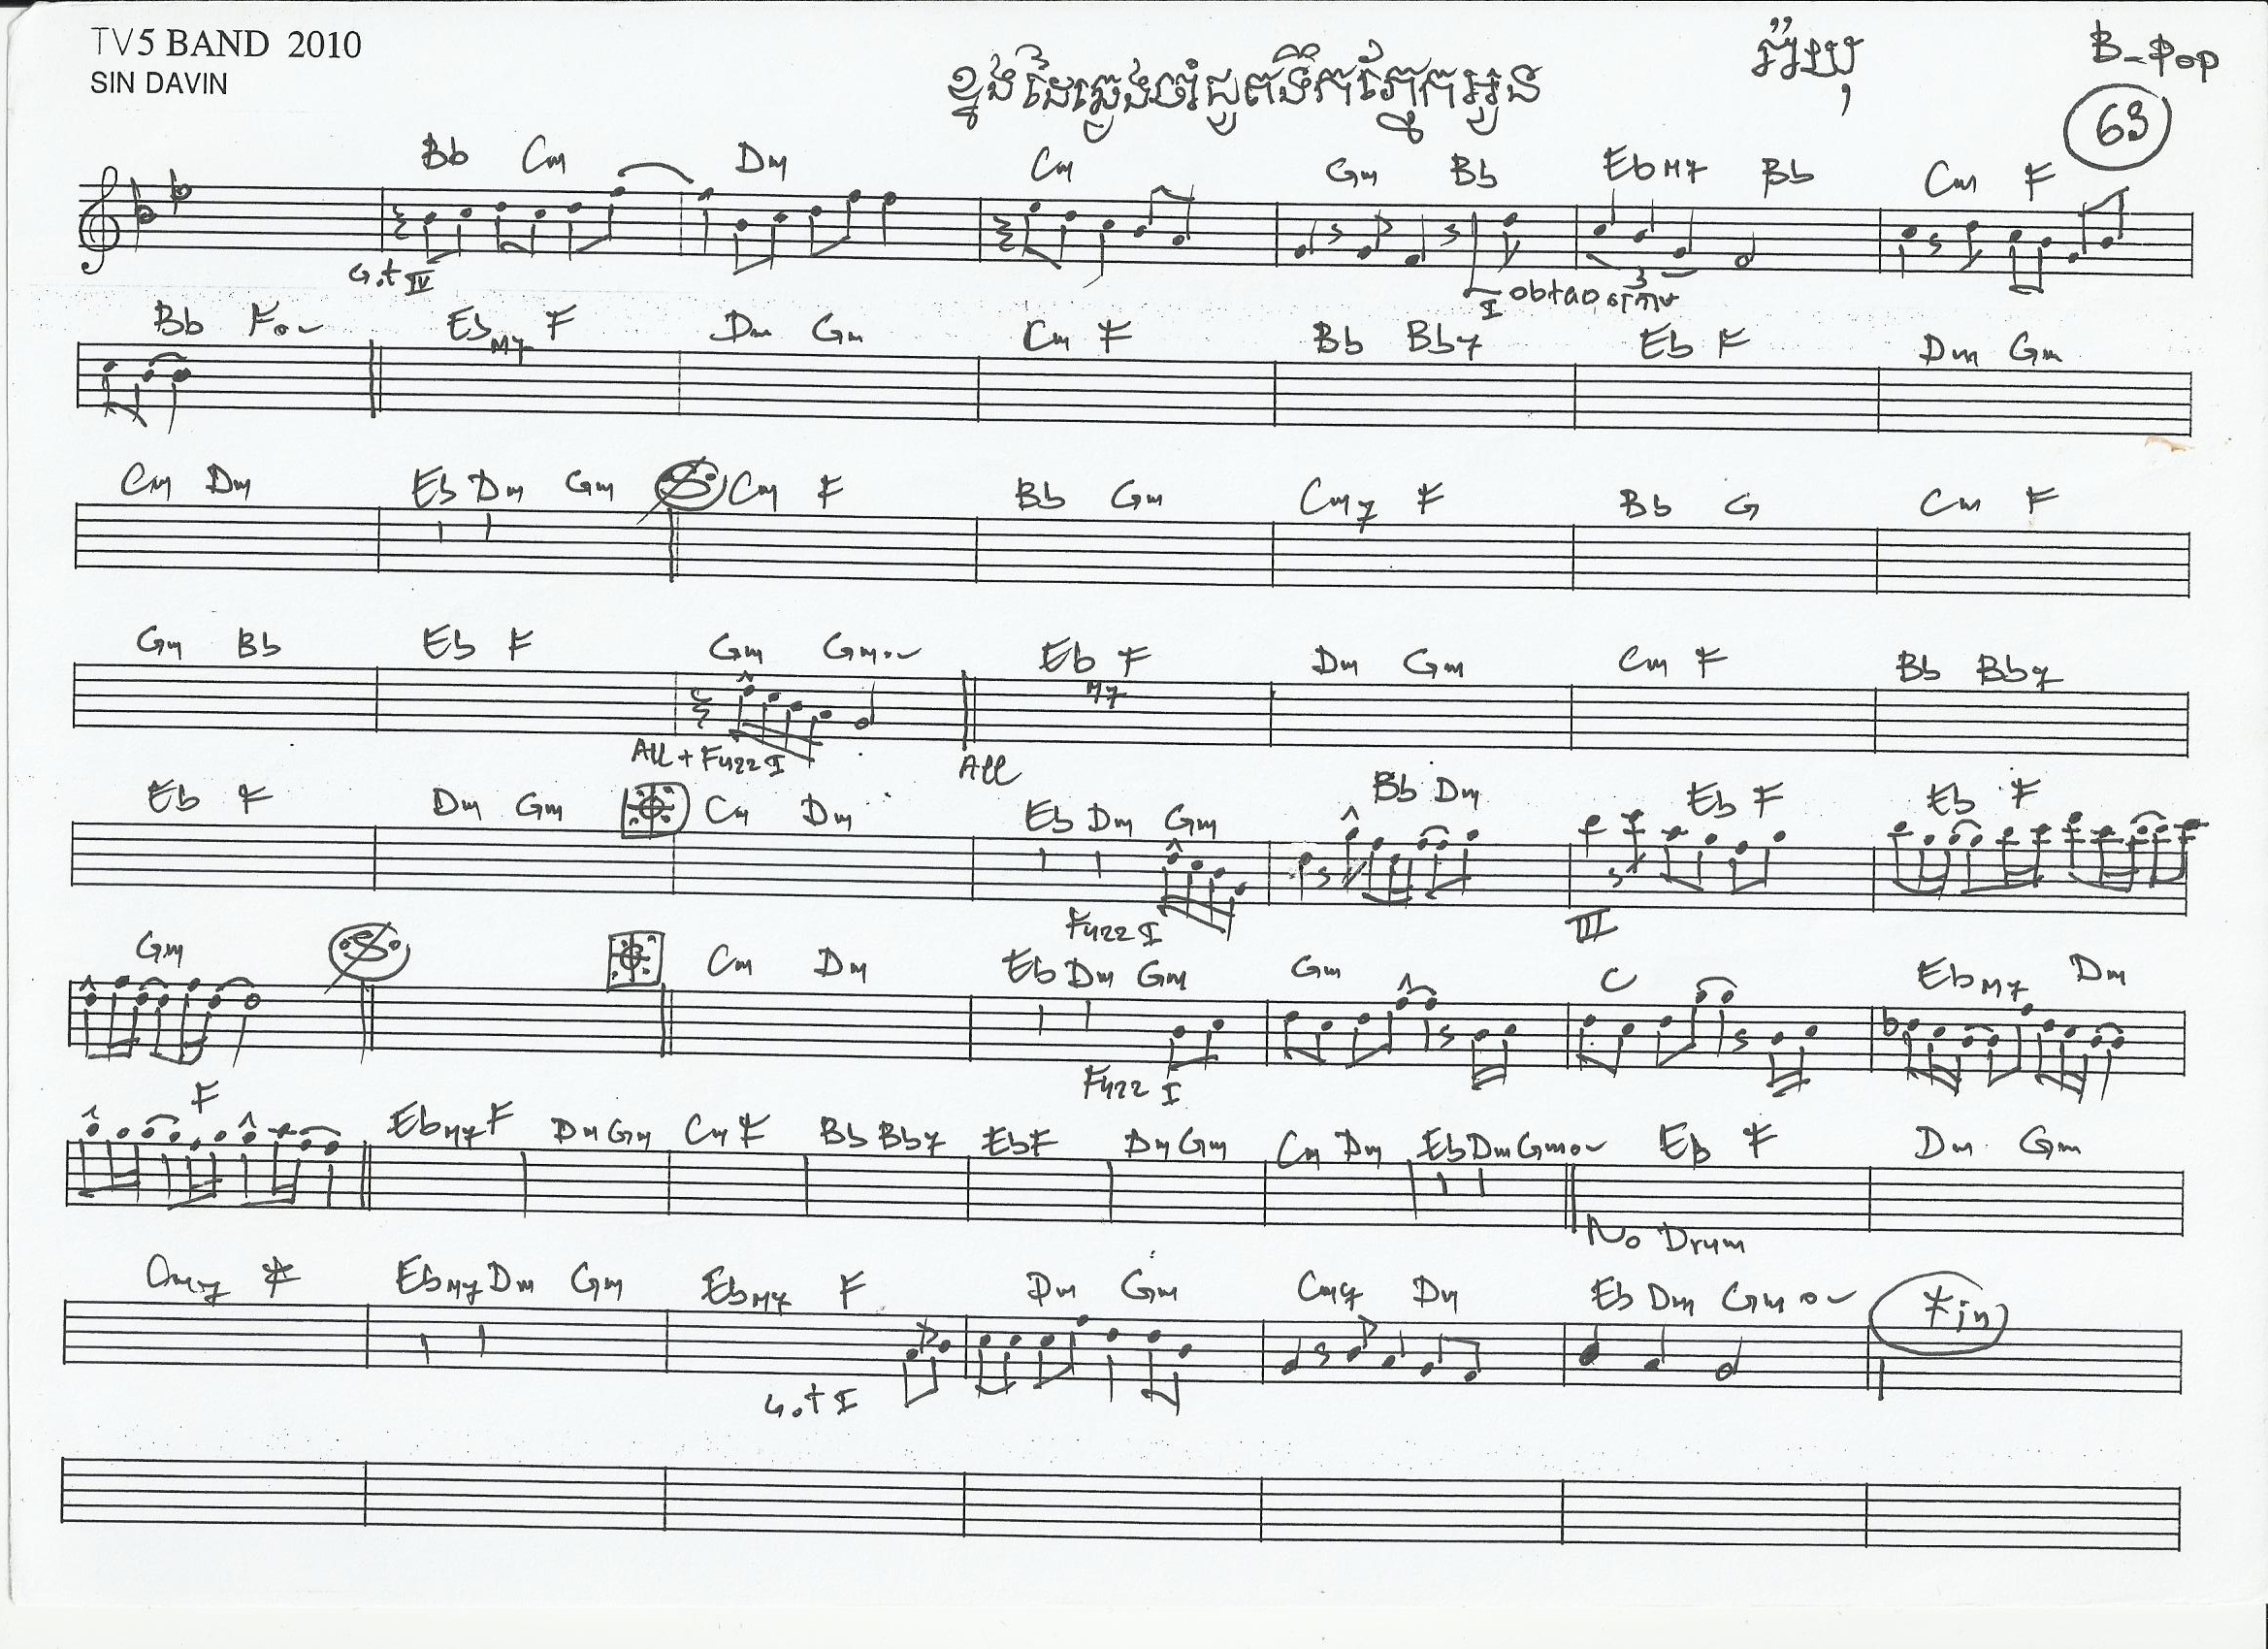 TV5 BAND 2010
SIN DAVIN
ខ្នងដៃឆ្វេងចាំជូតទឹកភ្នែកអូន
B-Pop
63
Bb Cm Dm Cm Gm Bb EbM7 Bb Cm F
G.t IV I
3
Bb F EbM7 F Dm Gm Cm F Bb Bb7 Eb F Dm Gm
Cm Dm Eb Dm Gm Cm F Bb Gm Cm7 F Bb G Cm F
Gm Bb Eb F Gm Gm Eb M7 F Dm Gm Cm F Bb Bb7
All + Fuzz I All
Eb F Dm Gm Cm Dm Eb Dm Gm Bb Dm Eb F Eb F
Fuzz I III
Gm Cm Dm Eb Dm Gm Gm C EbM7 Dm
Fuzz I
F EbM7 F Dm Gm Cm F Bb Bb7 Eb F Dm Gm Cm Dm Eb Dm Gm Eb F Dm Gm
No Drum
Cm7 F EbM7 Dm Gm EbM7 F Dm Gm Cm7 Dm Eb Dm Gm Fin
G.t I